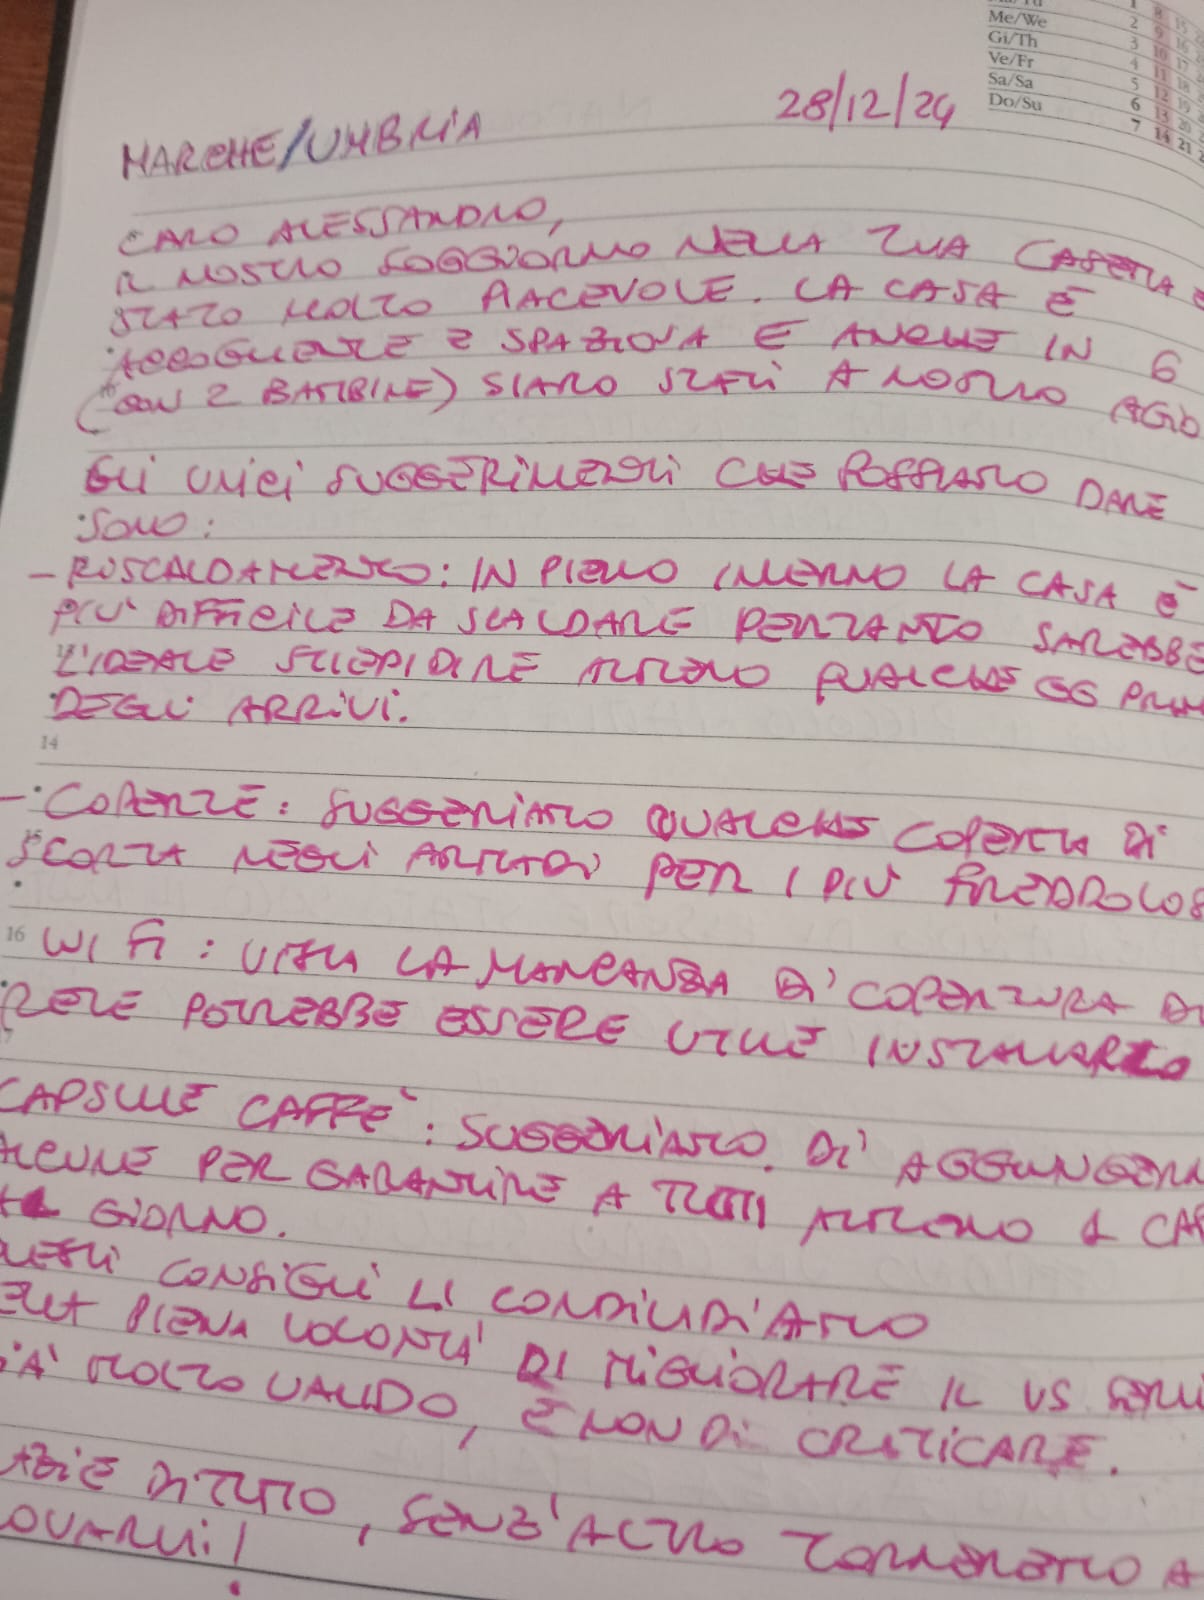 Me/We 2 9 16
Gi/Th 3 10 17
Ve/Fr 4 11 18
Sa/Sa 5 12 19
Do/Su 6 13 20
7 14 21
MARCHE/UMBRIA 28/12/24
CARO ALESSANDRO,
IL NOSTRO SOGGIORNO NELLA TUA CASETTA È
STATO MOLTO PIACEVOLE. LA CASA È
ACCOGLIENTE E SPAZIOSA E ANCHE IN 6
(CON 2 BAMBINE) SIAMO STATI A NOSTRO AGIO
GLI UNICI SUGGERIMENTI CHE POSSIAMO DARE
SONO:
- RISCALDAMENTO: IN PIENO INVERNO LA CASA È
PIÙ DIFFICILE DA SCALDARE PERTANTO SAREBBE
L'IDEALE STIEPIDIRE ALMENO QUALCHE GG PRIM
DEGLI ARRIVI.
14
- COPERTE: SUGGERIAMO QUALCHE COPERTA DI
15
SCORTA NEGLI ARMADI PER I PIÙ FREDDOLOS
16 WI FI: VISTA LA MANCANZA DI COPERTURA DI
RETE POTREBBE ESSERE UTILE INSTALLARLO
CAPSULE CAFFE': SUGGERIAMO DI AGGIUNGERN
ALCUNE PER GARANTIRE A TUTTI ALMENO 1 CAF
AL GIORNO.
QUESTI CONSIGLI LI CONDIVIDIAMO
NELLA PIENA VOLONTA' DI MIGLIORARE IL VS SERVI
GIA' MOLTO VALIDO, E NON DI CRITICARE.
GRAZIE DI TUTTO, SENZ'ALTRO TORNEREMO A
TROVARVI!